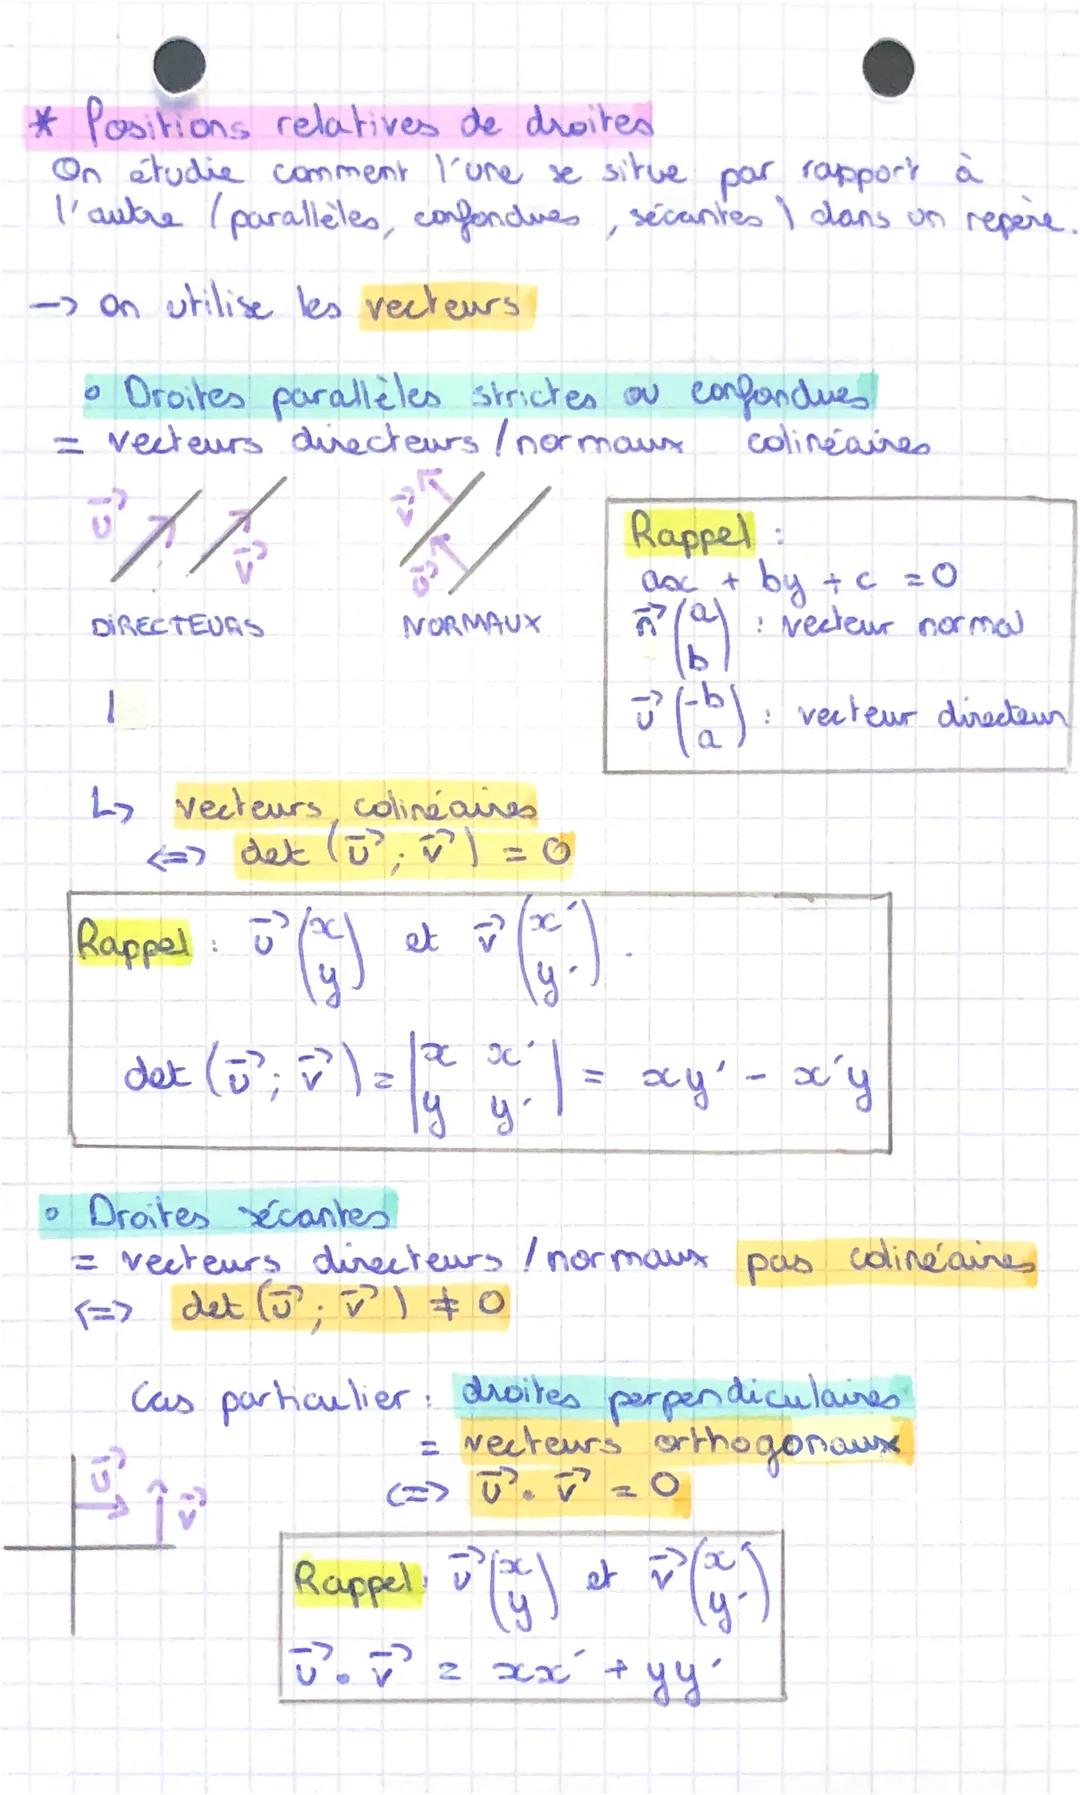 * Positions relatives de droites
On étudie comment l'une se situe par rapport à
l'autre (parallèles, confondues, sécantes) dans un repère.
-> on utilise les vecteurs
° Droites parallèles strictes ou confondues
= vecteurs directeurs / normaux colinéaires
u⃗ v⃗
DIRECTEURS
v⃗ u⃗
NORMAUX
Rappel :
ax + by + c = 0
n⃗ (a b) : vecteur normal
u⃗ (-b a) : vecteur directeur
↳ vecteurs colinéaires
<=> det (u⃗ ; v⃗) = 0
Rappel : u⃗ (x y) et v⃗ (x' y').
det (u⃗ ; v⃗) = |x x' y y'| = xy' - x'y
° Droites sécantes
= vecteurs directeurs / normaux pas colinéaires
<=> det (u⃗ ; v⃗) ≠ 0
Cas particulier : droites perpendiculaires
= vecteurs orthogonaux
<=> u⃗ . v⃗ = 0
u⃗ v⃗
Rappel : u⃗ (x y) et v⃗ (x' y')
u⃗ . v⃗ = xx' + yy'